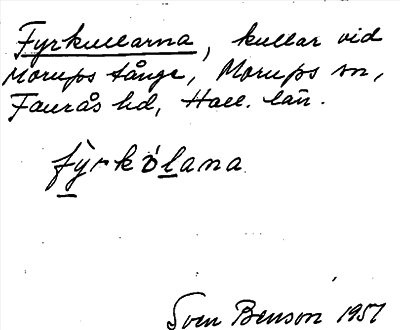 Fyrkullarna, kullar vid
Morups tånge, Morups sn,
Faurås hd, Hall. län.
fỳrkòlana
Sven Benson 1957